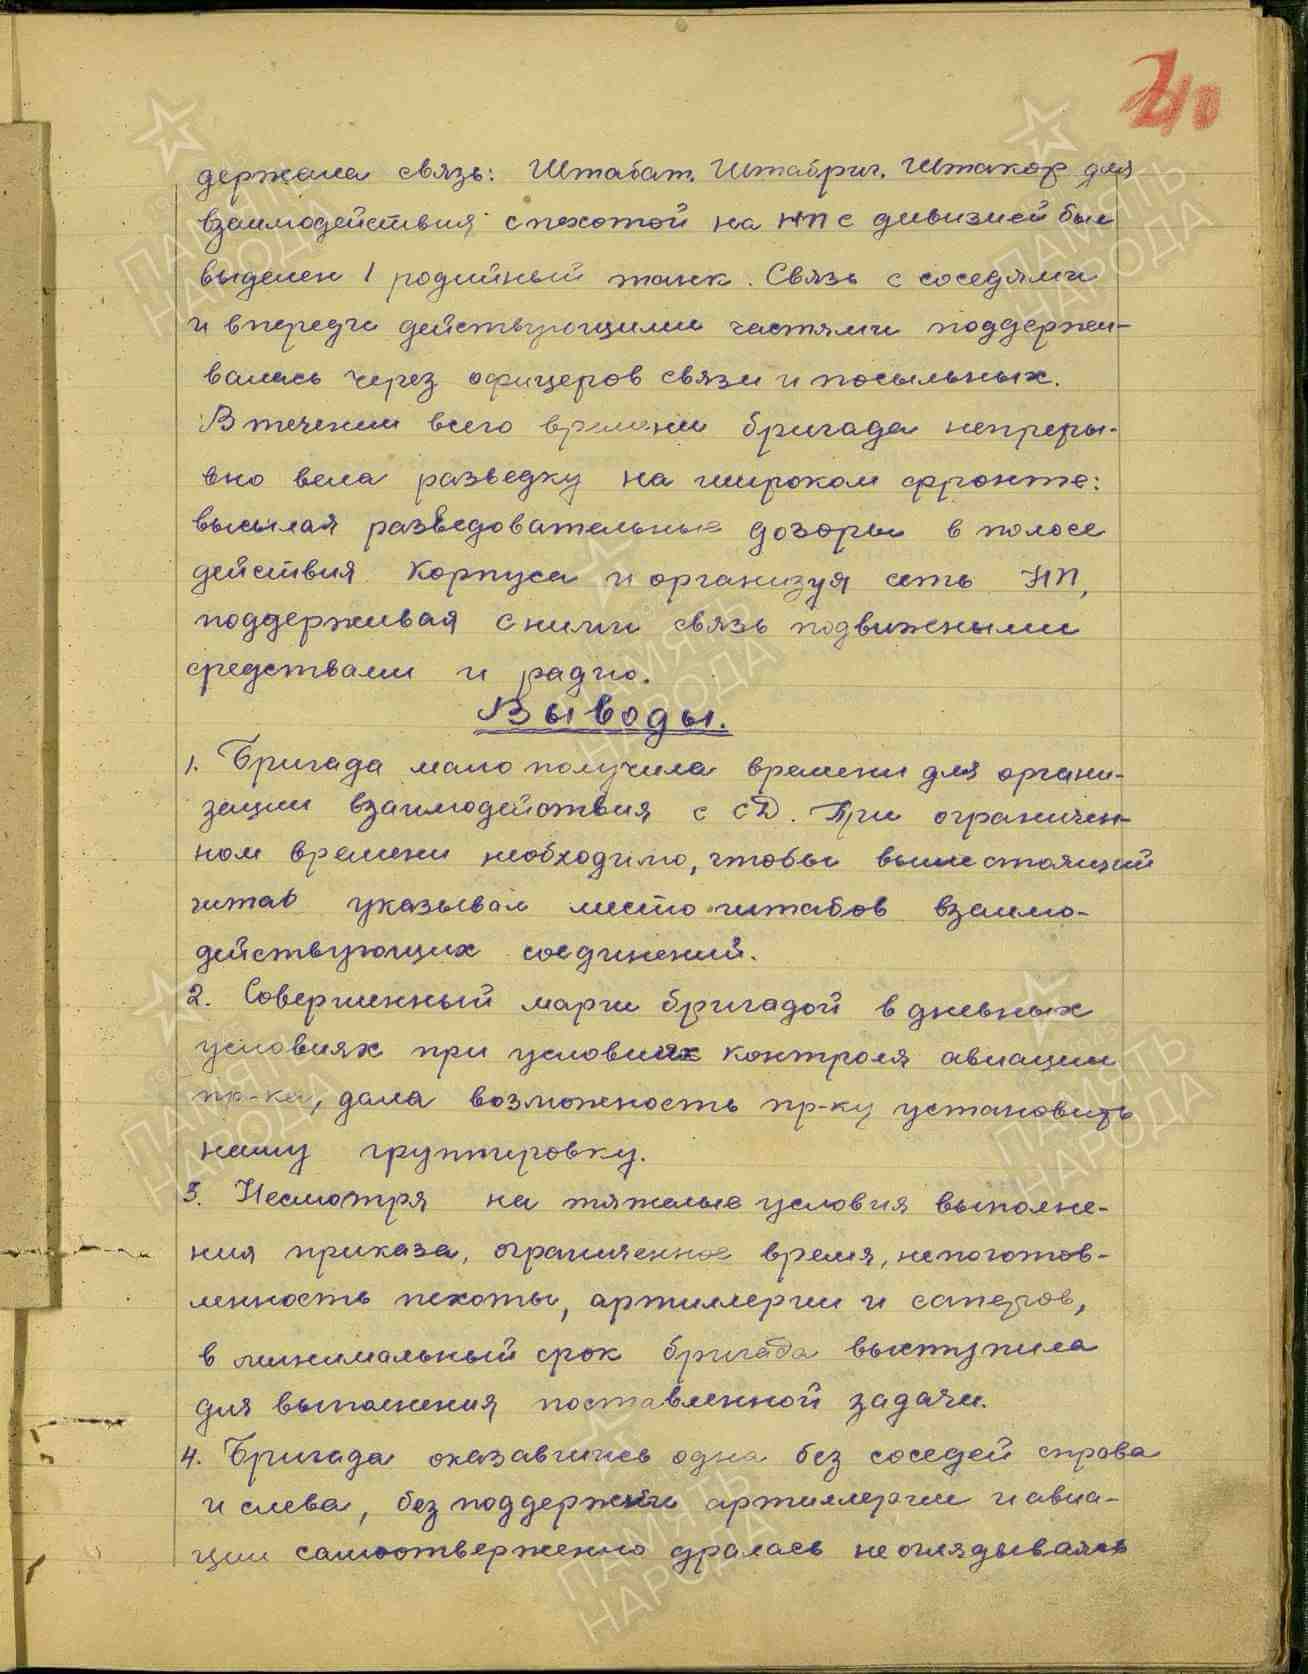 240
держала связь: Штабат. Штабриг. Штакор для
взаимодействия с пехотой на НП с дивизией был
выделен 1 родийный танк. Связь с соседями
и впереди действующими частями поддержи-
валась через офицеров связи и посыльных.
В течении всего времени бригада непреры-
вно вела разведку на широком фронте:
высылая разведовательные дозоры в полосе
действия Корпуса и организуя сеть НП,
поддерживая с ними связь подвижными
средствами и радио.
Выводы.
1. Бригада мало получила времени для органи-
зации взаимодействия с СД. При ограничен-
ном времени необходимо, чтобы вышестоящий
штаб указывал место штабов взаимо-
действующих соединений.
2. Совершенный марш бригадой в дневных
условиях при условиях контроля авиации
пр-ка, дала возможность пр-ку установить
нашу группировку.
3. Несмотря на тяжелые условия выполне-
ния приказа, ограниченное время, непоготов-
ленность пехоты, артиллерии и саперов,
в минимальный срок бригада выступила
для выполнения поставленной задачи.
4. Бригада оказавшись одна без соседей справа
и слева, без поддержки артиллерии и авиа-
ции самоотверженно дралась не оглядываясь
ПАМЯТЬ НАРОДА